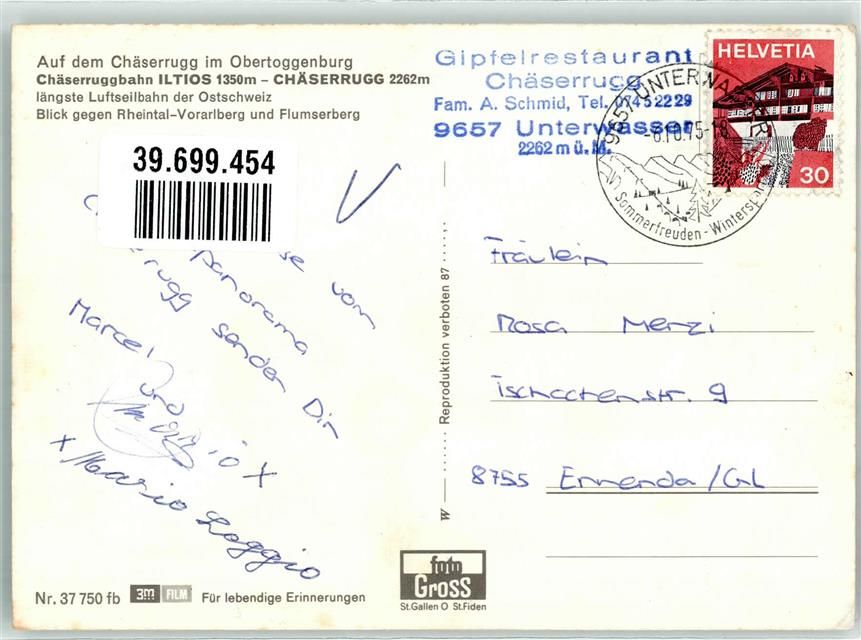 Auf dem Chäserrugg im Obertoggenburg
Chäserruggbahn ILTIOS 1350m – CHÄSERRUGG 2262m
längste Luftseilbahn der Ostschweiz
Blick gegen Rheintal-Vorarlberg und Flumserberg
39.699.454
se vom
panorama
rugg senden Dir
Marcel und
Mario
x Mario Loggio x
Nr. 37 750 fb 3M FILM Für lebendige Erinnerungen
W
Reproduktion verboten 87
foto
Gross
St.Gallen O St.Fiden
Gipfelrestaurant
Chäserrugg
Fam. A. Schmid, Tel. 074 5 22 29
9657 Unterwasser
2262 m ü. M.
9657 UNTERWASSER
Sommerfreuden - Wintersport
HELVETIA
30
Fräulein
Rosa Menzi
Tschachenstr. 9
8755 Ennenda/GL